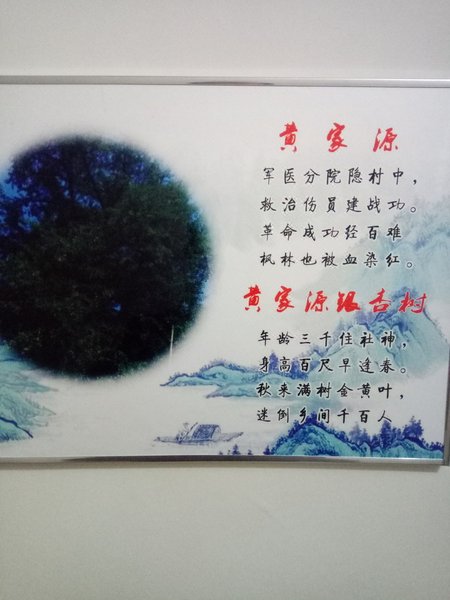 黄家源
军医分院隐村中，
救治伤员建战功。
革命成功经百难
枫林也被血染红。
黄家源银杏树
年龄三千住社神，
身高百尺早逢春。
秋来满树金黄叶，
迷倒乡间千百人